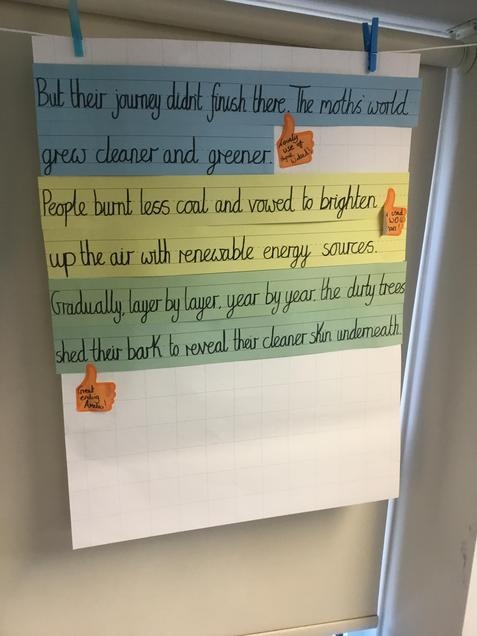 But their journey didnt finish there. The moths' world
grew cleaner and greener.
Lovely
use of
People burnt less coal and vowed to brighten
up the air with renewable energy sources.
Gradually, layer by layer, year by year, the dirty trees
shed their bark to reveal their cleaner skin underneath.
Great
ending